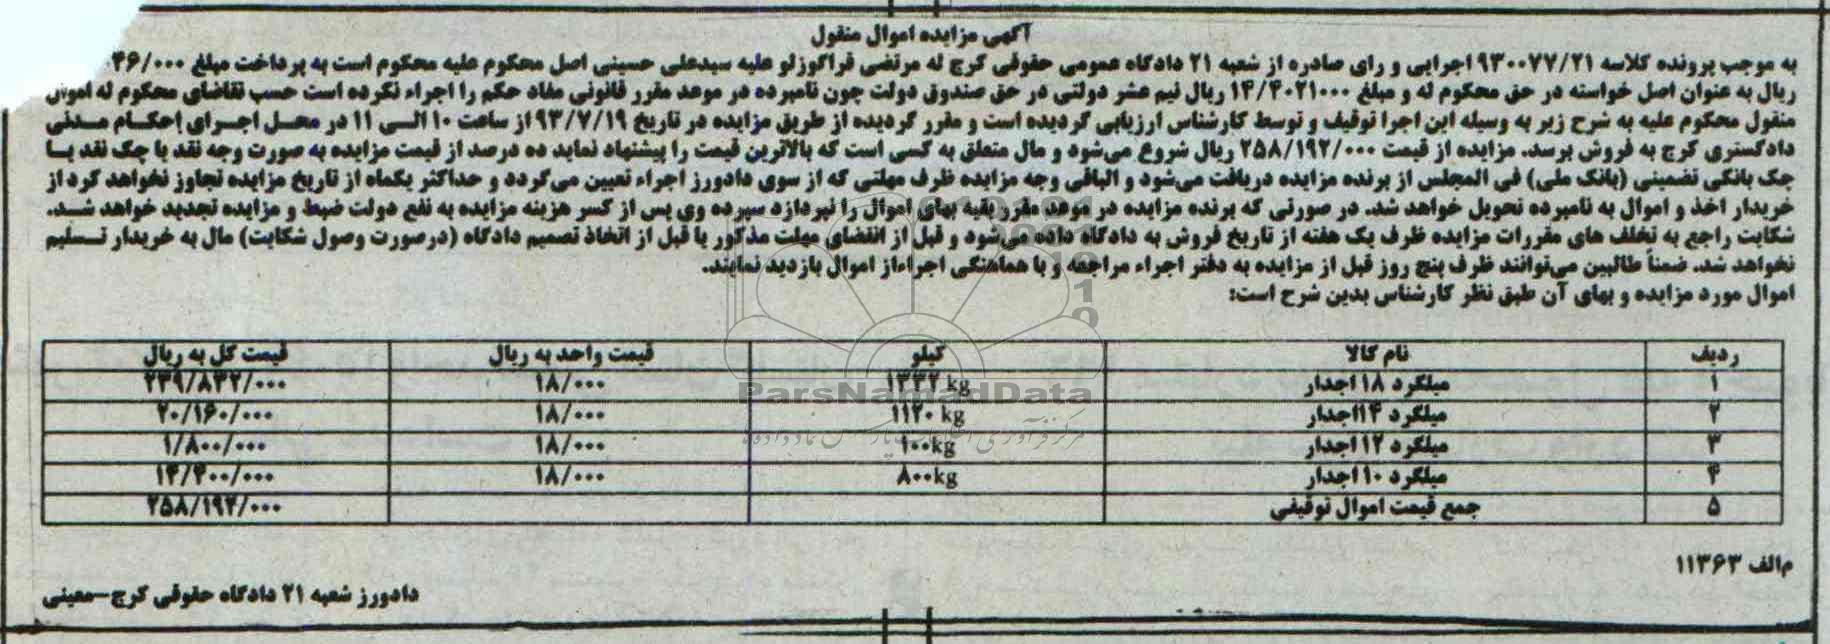 آگهی مزایده اموال منقول
به موجب پرونده کلاسه ۹۳۰۰۷۷/۲۱ اجرایی و رای صادره از شعبه ۲۱ دادگاه عمومی حقوقی کرج له مرتضی قراگوزلو علیه سیدعلی حسینی اصل محکوم علیه محکوم است به پرداخت مبلغ ۴۶/۰۰۰
ریال به عنوان اصل خواسته در حق محکوم له و مبلغ ۱۴/۴۰۲۱۰۰۰ ریال نیم عشر دولتی در حق صندوق دولت چون نامبرده در موعد مقرر قانونی مفاد حکم را اجراء نکرده است حسب تقاضای محکوم له اموال
منقول محکوم علیه به شرح زیر به وسیله این اجرا توقیف و توسط کارشناس ارزیابی گردیده است و مقرر گردیده از طریق مزایده در تاریخ ۹۳/۷/۱۹ از ساعت ۱۰ الی ۱۱ در محل اجرای احکام مدنی
دادگستری کرج به فروش برسد. مزایده از قیمت ۲۵۸/۱۹۲/۰۰۰ ریال شروع می‌شود و مال متعلق به کسی است که بالاترین قیمت را پیشنهاد نماید ده درصد از قیمت مزایده به صورت وجه نقد یا چک نقد یا
چک بانکی تضمینی (بانک ملی) فی المجلس از برنده مزایده دریافت می‌شود و الباقی وجه مزایده ظرف مهلتی که از سوی دادورز اجراء تعیین می‌گردد و حداکثر یکماه از تاریخ مزایده تجاوز نخواهد کرد از
خریدار اخذ و اموال به نامبرده تحویل خواهد شد. در صورتی که برنده مزایده در موعد مقرر بقیه بهای اموال را نپردازد سپرده وی پس از کسر هزینه مزایده به نفع دولت ضبط و مزایده تجدید خواهد شد.
شکایت راجع به تخلف های مقررات مزایده ظرف یک هفته از تاریخ فروش به دادگاه داده می‌شود و قبل از انقضای مهلت مذکور یا قبل از اتخاذ تصمیم دادگاه (درصورت وصول شکایت) مال به خریدار تسلیم
نخواهد شد. ضمناً طالبین می‌توانند ظرف پنج روز قبل از مزایده به دفتر اجراء مراجعه و با هماهنگی اجراءاز اموال بازدید نمایند.
اموال مورد مزایده و بهای آن طبق نظر کارشناس بدین شرح است:
ردیف نام کالا کیلو قیمت واحد به ریال قیمت کل به ریال
۱ میلگرد ۱۸ اجدار kg ۱۸/۰۰۰ ۲۳۹/۸۳۲/۰۰۰
۲ میلگرد ۱۴اجدار ۱۱۲۰ kg ۱۸/۰۰۰ ۲۰/۱۶۰/۰۰۰
۳ میلگرد ۱۲ اجدار ۱۰۰kg ۱۸/۰۰۰ ۱/۸۰۰/۰۰۰
۴ میلگرد ۱۰ اجدار ۸۰۰kg ۱۸/۰۰۰ ۱۴/۴۰۰/۰۰۰
۵ جمع قیمت اموال توقیفی ۲۵۸/۱۹۲/۰۰۰
م‌الف ۱۱۳۶۳
دادورز شعبه ۲۱ دادگاه حقوقی کرج–معینی
ParsNamadData